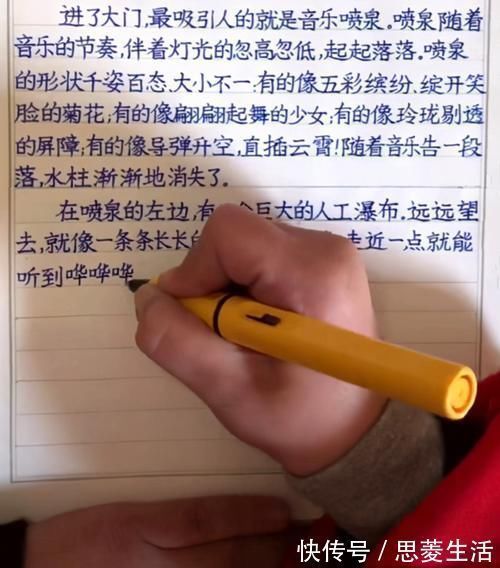 进了大门,最吸引人的就是音乐喷泉。喷泉随着
音乐的节奏,伴着灯光的忽高忽低,起起落落。喷泉
的形状千姿百态、大小不一:有的像五彩缤纷、绽开笑
脸的菊花;有的像翩翩起舞的少女;有的像玲珑剔透
的屏障;有的像导弹升空,直插云霄!随着音乐告一段
落,水柱渐渐地消失了。
在喷泉的左边,有 个巨大的人工瀑布。远远望
去,就像一条条长长的 走近一点就能
听到哗哗哗
快传号 / 思菱生活